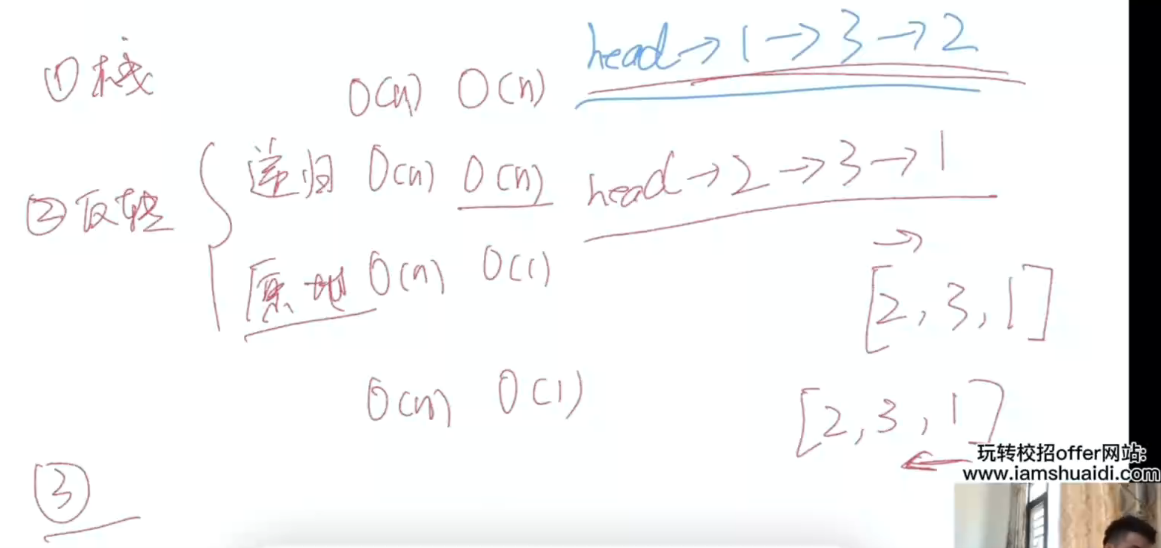 ① 栈 O(n) O(n) head→1→3→2
② 反转 { 递归 O(n) O(n) head→2→3→1
原地 O(n) O(1)
→
[2, 3, 1]
O(n) O(1) [2, 3, 1]
←
③
玩转校招offer网站:
www.iamshuaidi.com